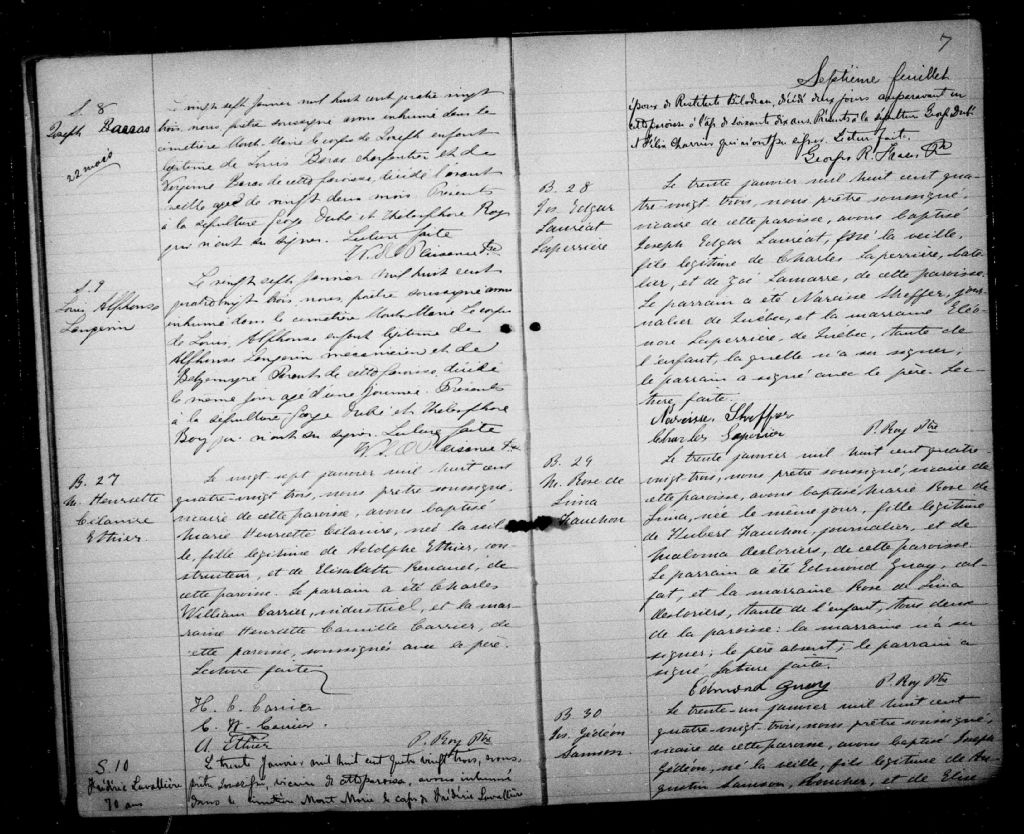 S. 8
Joseph Baras
22 mois
vingt sept janvier mil huit cent quatre vingt
trois, nous, prêtre soussigné avons inhumé dans le
cimetière Mont-Marie le corps de Joseph enfant
légitime de Louis Baras charpentier et de
Virginie Baras de cette paroisse, décédé l'avant
veille agé de vingt deux mois. Présents
à la sépulture George Dubé et Thélesphore Roy
qui n'ont su signer. Lecture faite
S. 9
Louis Alphonse
Langevin
Le vingt sept janvier mil huit cent
quatre vingt trois, nous, prêtre soussigné avons
inhumé dans le cimetière Mont Marie le corps
de Louis Alphonse enfant légitime de
Alphonse Langevin mecanicien et de
Parents de cette paroisse, décédé
le même jour agé d'une journée. Présents
à la sépulture George Dubé et Thelesphore
Roy qui n'ont su signer. Lecture faite
B. 27
M. Henriette
Célanire
Ethier.
Le vingt sept janvier mil huit cent
quatre-vingt trois, nous prêtre soussigné,
vicaire de cette paroisse, avons baptisé
Marie Henriette Célanire, née la veil-
le, fille légitime de Adolphe Ethier, cons-
tructeur, et de Elisabeth Renaud, de
cette paroisse. Le parrain a été Charles
William Carrier, industriel, et la mar-
raine Henriette Camille Carrier, de
cette paroisse, soussignés avec le père.
Lecture faite
H. C. Carrier
C. W. Carrier.
A. Ethier
P. Roy Ptre
S. 10
Frédéric Lavallière
70 ans
Le trente janvier mil huit cent quatre vingt trois, nous,
prêtre soussigné, vicaire de cette paroisse, avons inhumé
dans le cimetière Mont Marie le corps de Frédéric Lavallière
7
Septième feuillet
époux de Restitute Bilodeau, décédé deux jours auparavant en
cette paroisse à l'âge de soixante dix ans. Présents à la sépulture George Dubé
et Félix Charrier qui n'ont pu signer. Lecture faite.
B. 28
Jos. Edgar
Lauréat
Laperrière
Le trente janvier mil huit cent qua-
tre-vingt trois, nous prêtre soussigné,
vicaire de cette paroisse, avons baptisé
Joseph Edgar Lauréat, né la veille,
fils légitime de Charles Laperrière, bate-
lier, et de Zoé Lamarre, de cette paroisse.
Le parrain a été Narcisse Sheffer, jour-
nalier de Québec, et la marraine Eléo-
nore Laperrière, de Québec, tante de
l'enfant, laquelle n'a su signer;
le parrain a signé avec le père. Lec-
ture faite.
Narcisse Sheffer
Charles Laperier
P. Roy Ptre
B. 29
M. Rose de
Lima
Fauchon
Le trente janvier mil huit cent quatre-
vingt-trois, nous prêtre soussigné, vicaire de
cette paroisse, avons baptisé Marie Rose de
Lima, née le même jour, fille légitime
de Hubert Fauchon, journalier, et de
Malvina Desloriers, de cette paroisse.
Le parrain a été Edmond Guay, cal-
fat, et la marraine Rose de Lima
Desloriers, tante de l'enfant, tous deux
de la paroisse: la marraine n'a su
signer; le père absent; le parrain a
signé. Lecture faite.
Edmond Guay
P. Roy Ptre
B. 30
Jos. Gédéon
Samson.
Le trente-un janvier mil huit cent
quatre-vingt-trois, nous prêtre soussigné,
vicaire de cette paroisse, avons baptisé Joseph
Gédéon, né la veille, fils légitime de Au-
gustin Samson, boucher, et de Elise